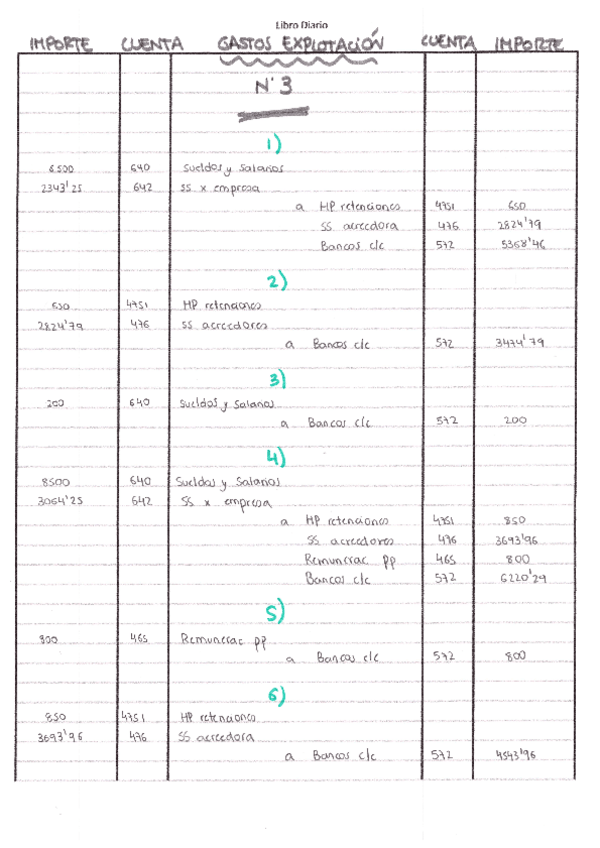 Libro Diario
IMPORTE CUENTA GASTOS EXPLOTACIÓN CUENTA IMPORTE
Nº3
1)
6.500 640 Sueldos y Salarios
2343'25 642 SS x empresa
a HP retenciones 4751 650
SS acreedora 476 2824'79
Bancos c/c 572 5368'46
2)
650 4751 HP retenciones
2824'79 476 SS acreedores
a Bancos c/c 572 3474'79
3)
200 640 Sueldos y Salarios
a Bancos c/c 572 200
4)
8500 640 Sueldos y Salarios
3064'25 642 SS x empresa
a HP retenciones 4751 850
SS acreedores 476 3693'96
Remunerac pp 465 800
Bancos c/c 572 6220'29
5)
800 465 Remunerac pp
a Bancos c/c 572 800
6)
850 4751 HP retenciones
3693'96 476 SS acreedora
a Bancos c/c 572 4543'96